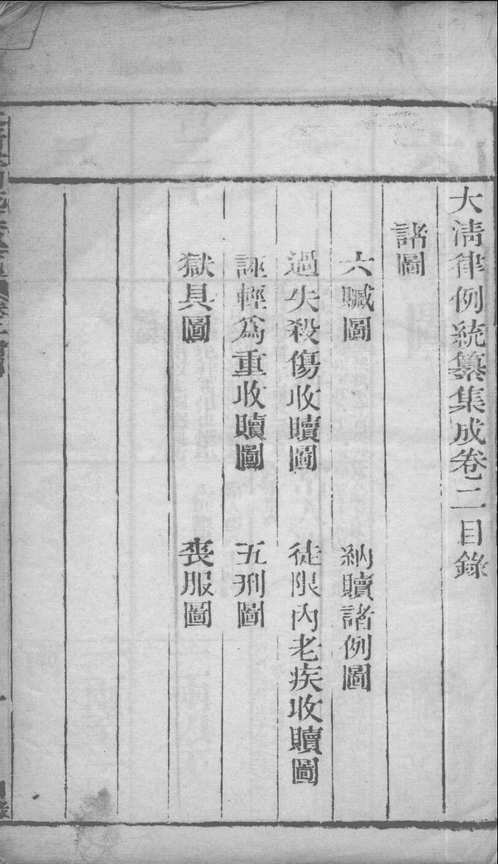 大淸律例統纂集成卷二目錄
諸圖
六贓圖　納贖諸例圖
過失殺傷收贖圖　徒限內老疾收贖圖
誣輕爲重收贖圖　五刑圖
獄具圖　喪服圖